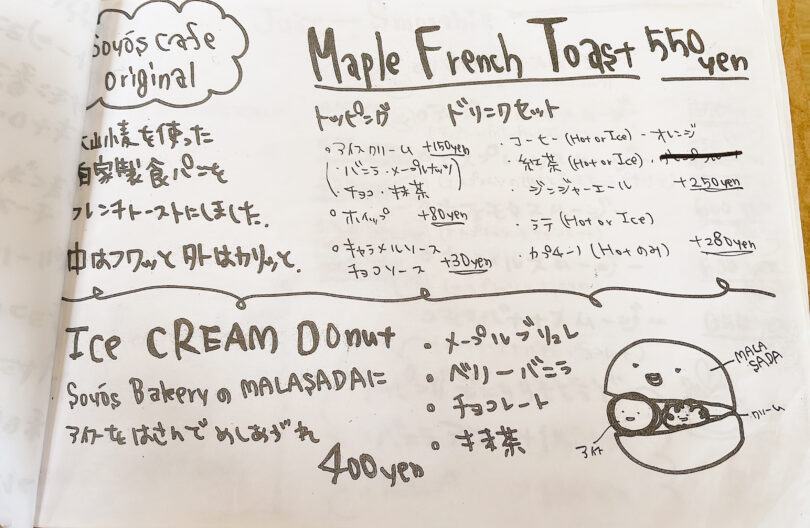 Soyó's Cafe
original
Maple French Toast 550yen
大山小麦を使った
自家製食パンを
フレンチトーストにしました。
中はフワッと外はカリッと。
トッピング
。アイスクリーム +150yen
(・バニラ・メープルナッツ
・チョコ・抹茶)
。ホイップ +80yen
。キャラメルソース
チョコソース +30yen
ドリンクセット
・コーヒー (Hot or Ice) ・オレンジ
・紅茶 (Hot or Ice) ・
・ジンジャーエール +250yen
・ラテ (Hot or Ice)
・カプチーノ (Hot のみ) +280yen
Ice CREAM DOnut
Soyó's Bakery の MALASADAに
アイスをはさんでめしあがれ
400yen
・メープルブリュレ
・ベリーバニラ
・チョコレート
・抹茶
MALA
SADA
クリーム
アイス